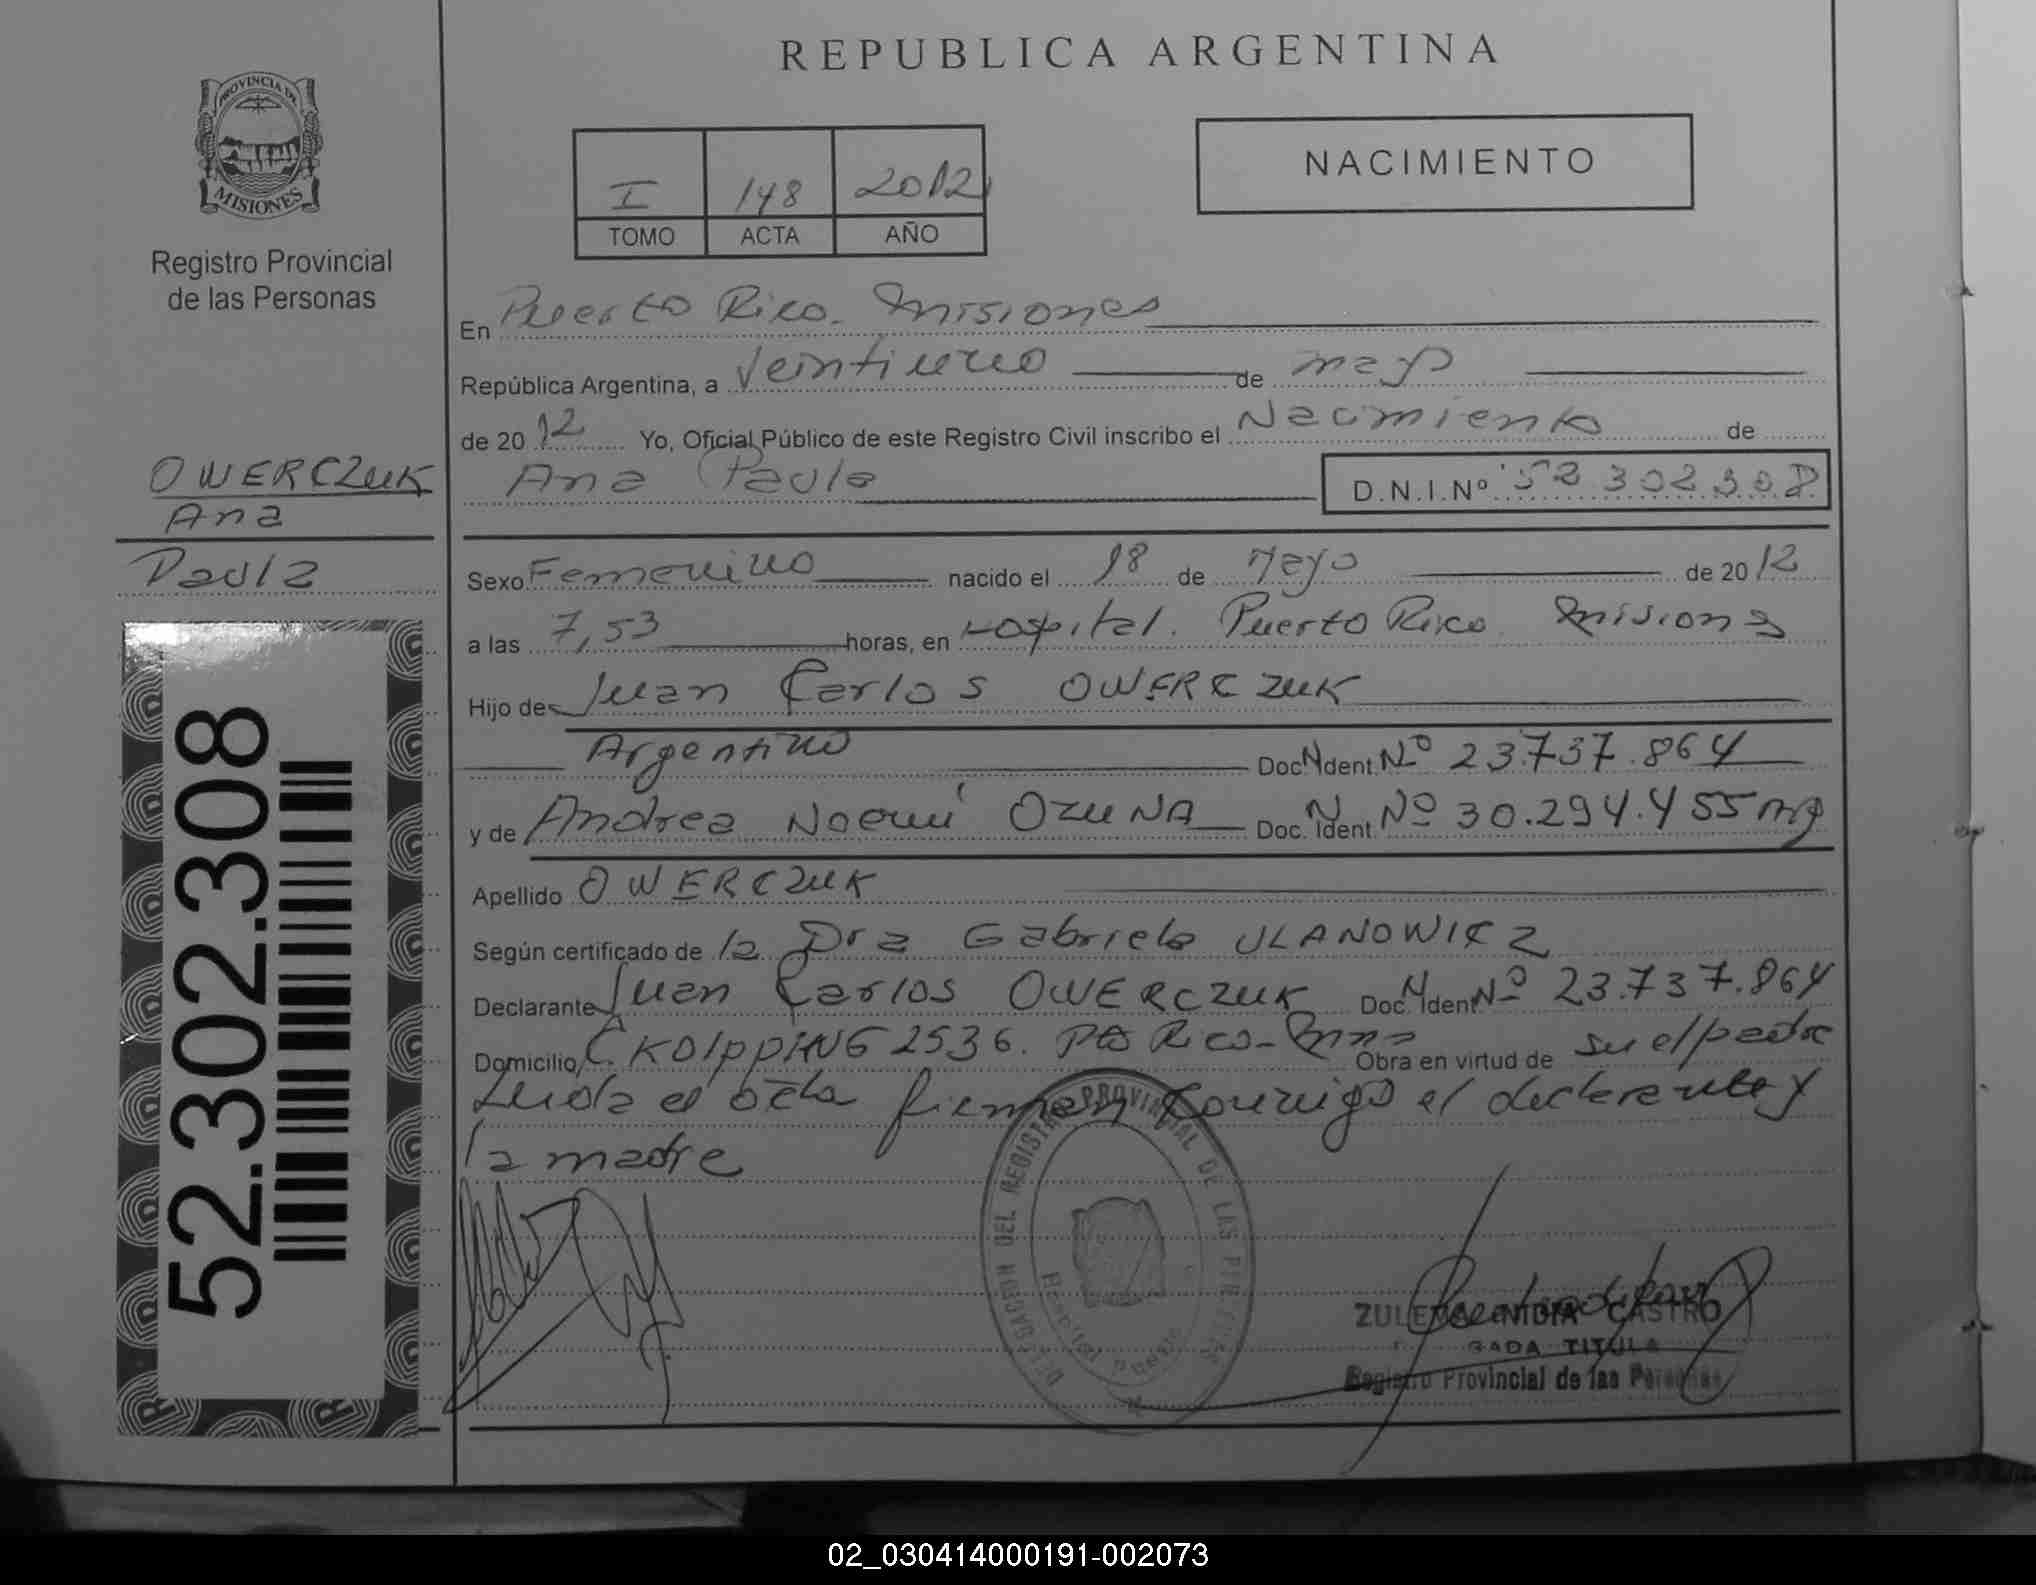 REPUBLICA ARGENTINA
PROVINCIA DE
MISIONES
Registro Provincial
de las Personas
I 148 2012
TOMO ACTA AÑO
NACIMIENTO
En Puerto Rico. Misiones
República Argentina, a Veintiuno de mayo
de 2012 Yo, Oficial Público de este Registro Civil inscribo el Nacimiento de
Ana Paula D.N.I.Nº 52 302 308
OWERCZUK
Ana
Paula
Sexo Femenino nacido el 18 de Mayo de 2012
a las 7,53 horas, en Hospital. Puerto Rico. Misiones
Hijo de Juan Carlos OWERCZUK
Argentino Doc. N Ident. Nº 23.737.864
y de Andrea Noemí OZUNA Doc. N Ident. Nº 30.294.455
Apellido OWERCZUK
Según certificado de la Dra Gabriela ULANOWICZ
Declarante Juan Carlos OWERCZUK Doc. N Ident. Nº 23.737.864
Domicilio C. KOlppiNG 2536. Pto Rico- Mnes Obra en virtud de su el padre
Leida el acta firman conmigo el declarante y
la madre
52.302.308
DELEGACION DEL REGISTRO PROVINCIAL DE LAS PERSONAS
ZULEMA NIDIA CASTRO
Registro Provincial de las Personas
02_030414000191-002073